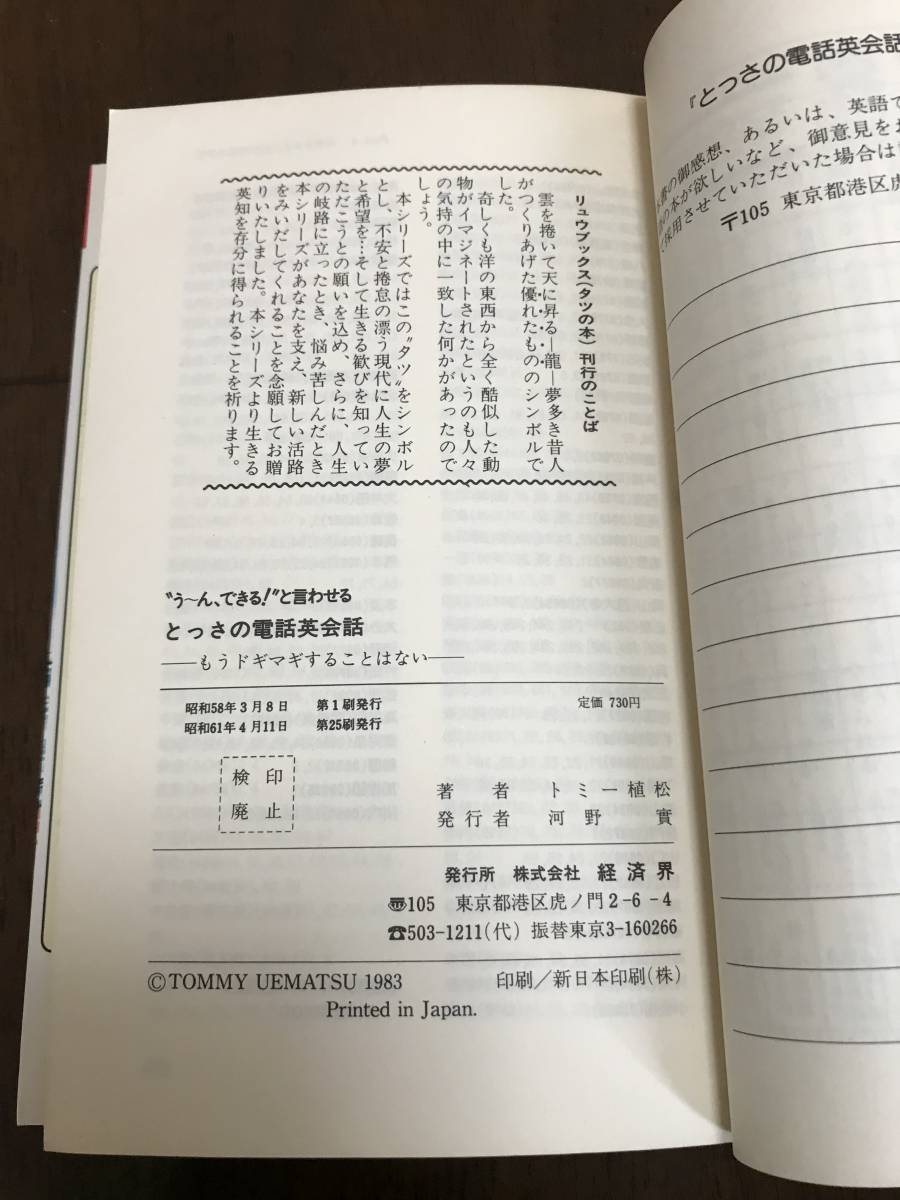 リュウブックス(タツの本) 刊行のことば
雲を捲いて天に昇る―龍―夢多き昔人
がつくりあげた優れたもののシンボルで
した。
奇しくも洋の東西から全く酷似した動
物がイマジネートされたというのも人々
の気持の中に一致した何かがあったので
しょう。
本シリーズではこの〝タツ〟をシンボル
とし、不安と捲怠の漂う現代に人生の夢
と希望を…そして生きる歓びを知ってい
ただこうとの願いを込め、さらに、人生
の岐路に立ったとき、悩み苦しんだとき
本シリーズがあなたを支え、新しい活路
をみいだしてくれることを念願してお贈
りいたしました。本シリーズより生きる
英知を存分に得られることを祈ります。
〝う〜ん、できる!〟と言わせる
とっさの電話英会話
――もうドギマギすることはない――
昭和58年3月8日 第1刷発行
昭和61年4月11日 第25刷発行
定価 730円
検印
廃止
著者 トミー植松
発行者 河野實
発行所 株式会社 経済界
〠105 東京都港区虎ノ門2-6-4
☎503-1211(代) 振替東京3-160266
©TOMMY UEMATSU 1983
印刷/新日本印刷(株)
Printed in Japan.
『とっさの電話英会話
の御感想、あるいは、英語で
の本が欲しいなど、御意見をお
採用させていただいた場合は
〒105 東京都港区虎